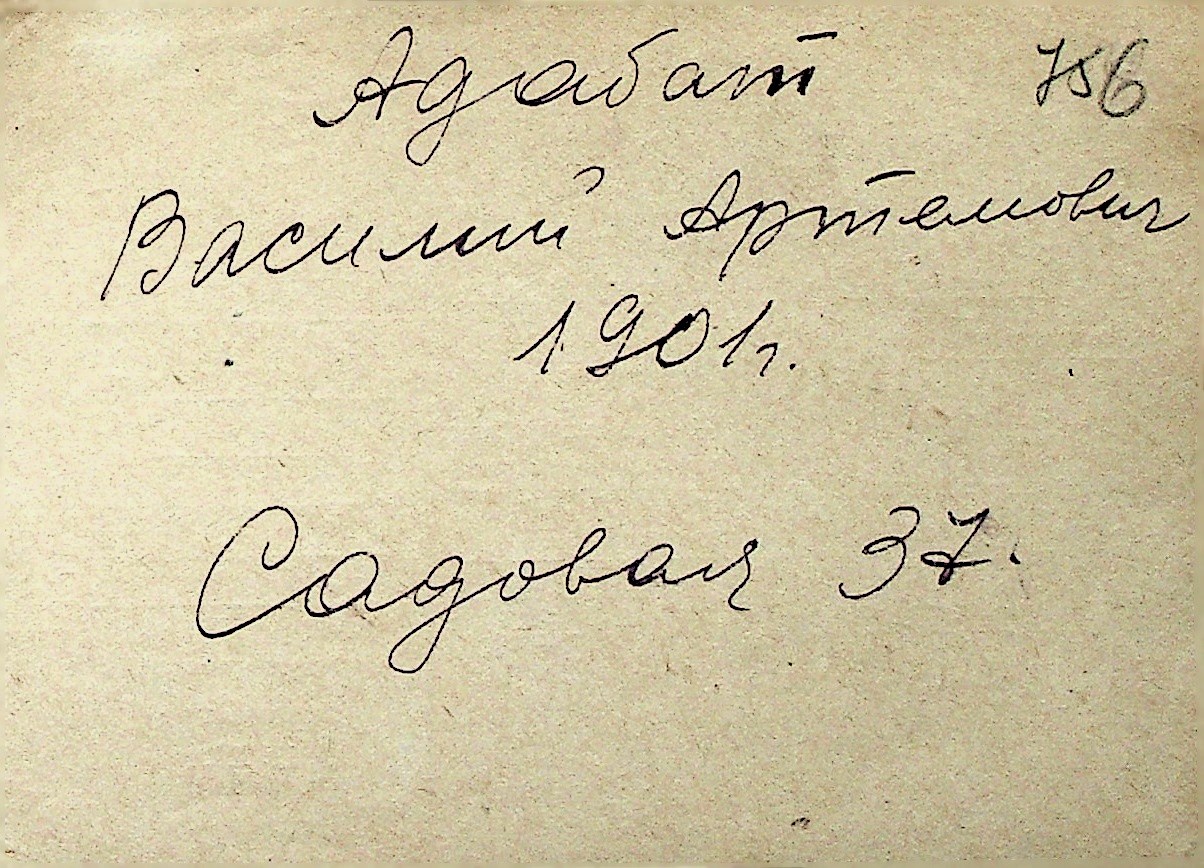 Адабат 756
Василий Артемович
1901г.
Садовая 37.